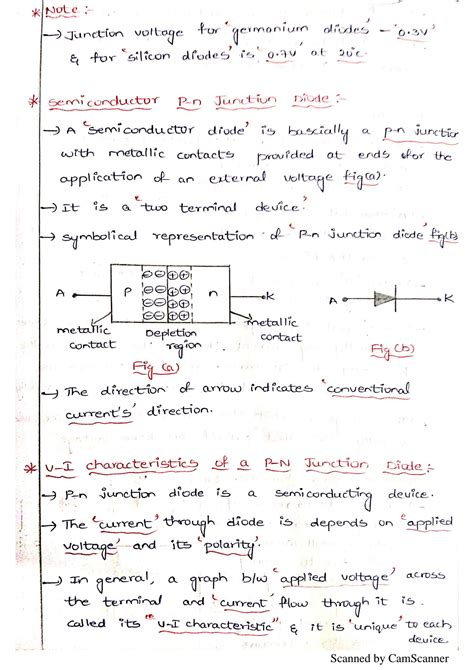 * Note :-
→ Junction voltage for 'germonium diodes' - '0.3V'
& for 'silicon diodes' is '0.7V' at 20°c.
* Semiconductor P-n Junction Diode :-
→ A 'semiconductor diode' is bascially a p-n junction
with metallic contacts provided at ends for the
application of an external voltage fig(a).
→ It is a 'two terminal device'.
→ symbolical representation of 'P-n junction diode' fig(b)
A P ⊖⊖⊕⊕ n K
⊖⊖⊕⊕
⊖⊖⊕⊕
⊖⊖⊕⊕
A K
metallic contact
Depletion region
metallic contact
Fig (a)
Fig (b)
→ The direction of arrow indicates 'conventional
current's' direction.
* V-I characteristics of a P-N Junction Diode :-
→ P-n junction diode is a semiconducting device.
→ The 'current' through diode is depends on 'applied
voltage' and its 'polarity'.
→ In general, a graph b/w 'applied voltage' across
the terminal and 'current' flow through it is
called its "V-I characteristic" & it is 'unique' to each
device.
Scanned by CamScanner